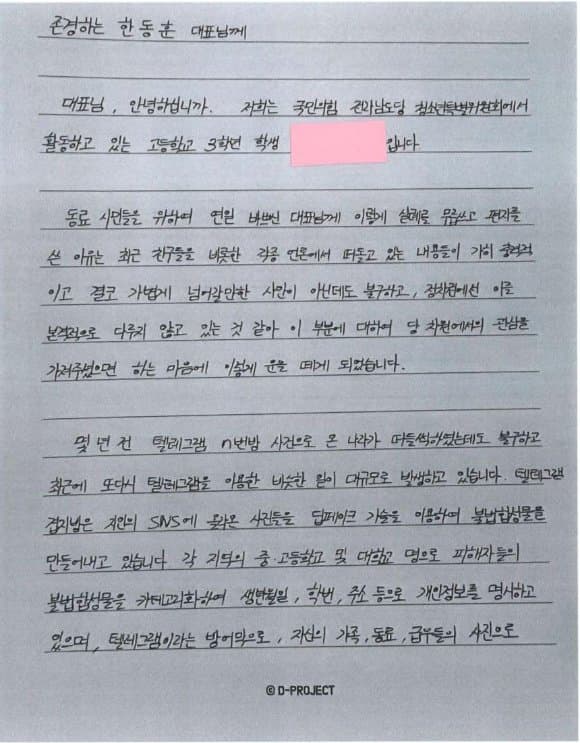 존경하는 한동훈 대표님께
대표님, 안녕하십니까. 저희는 국민의힘 전라남도당 청소년특별위원회에서
활동하고 있는 고등학교 3학년 학생 입니다
동료 시민들을 위하여 연일 바쁘신 대표님께 이렇게 실례를 무릅쓰고 편지를
쓴 이유는 최근 친구들을 비롯한 각종 언론에서 떠돌고 있는 내용들이 가히 충격적
이고 결코 가볍게 넘어갈만한 사안이 아닌데도 불구하고, 정치권에선 이를
본격적으로 다루지 않고 있는 것 같아 이 부분에 대하여 당 차원에서의 관심을
가져주셨으면 하는 마음에 이렇게 운을 떼게 되었습니다.
몇 년 전 텔레그램 n번방 사건으로 온 나라가 떠들썩하였는데도 불구하고
최근에 또다시 텔레그램을 이용한 비슷한 일이 대규모로 발생하고 있습니다. 텔레그램
겹지방은 지인의 SNS에 올라온 사진들을 딥페이크 기술을 이용하여 불법합성물을
만들어내고 있습니다 각 지역의 중·고등학교 및 대학교 명으로 피해자들의
불법합성물을 카테고리화하여 생년월일, 학번, 주소 등으로 개인정보를 명시하고
있으며, 텔레그램이라는 방어막으로, 자신의 가족, 동료, 급우들의 사진으로
© D-PROJECT